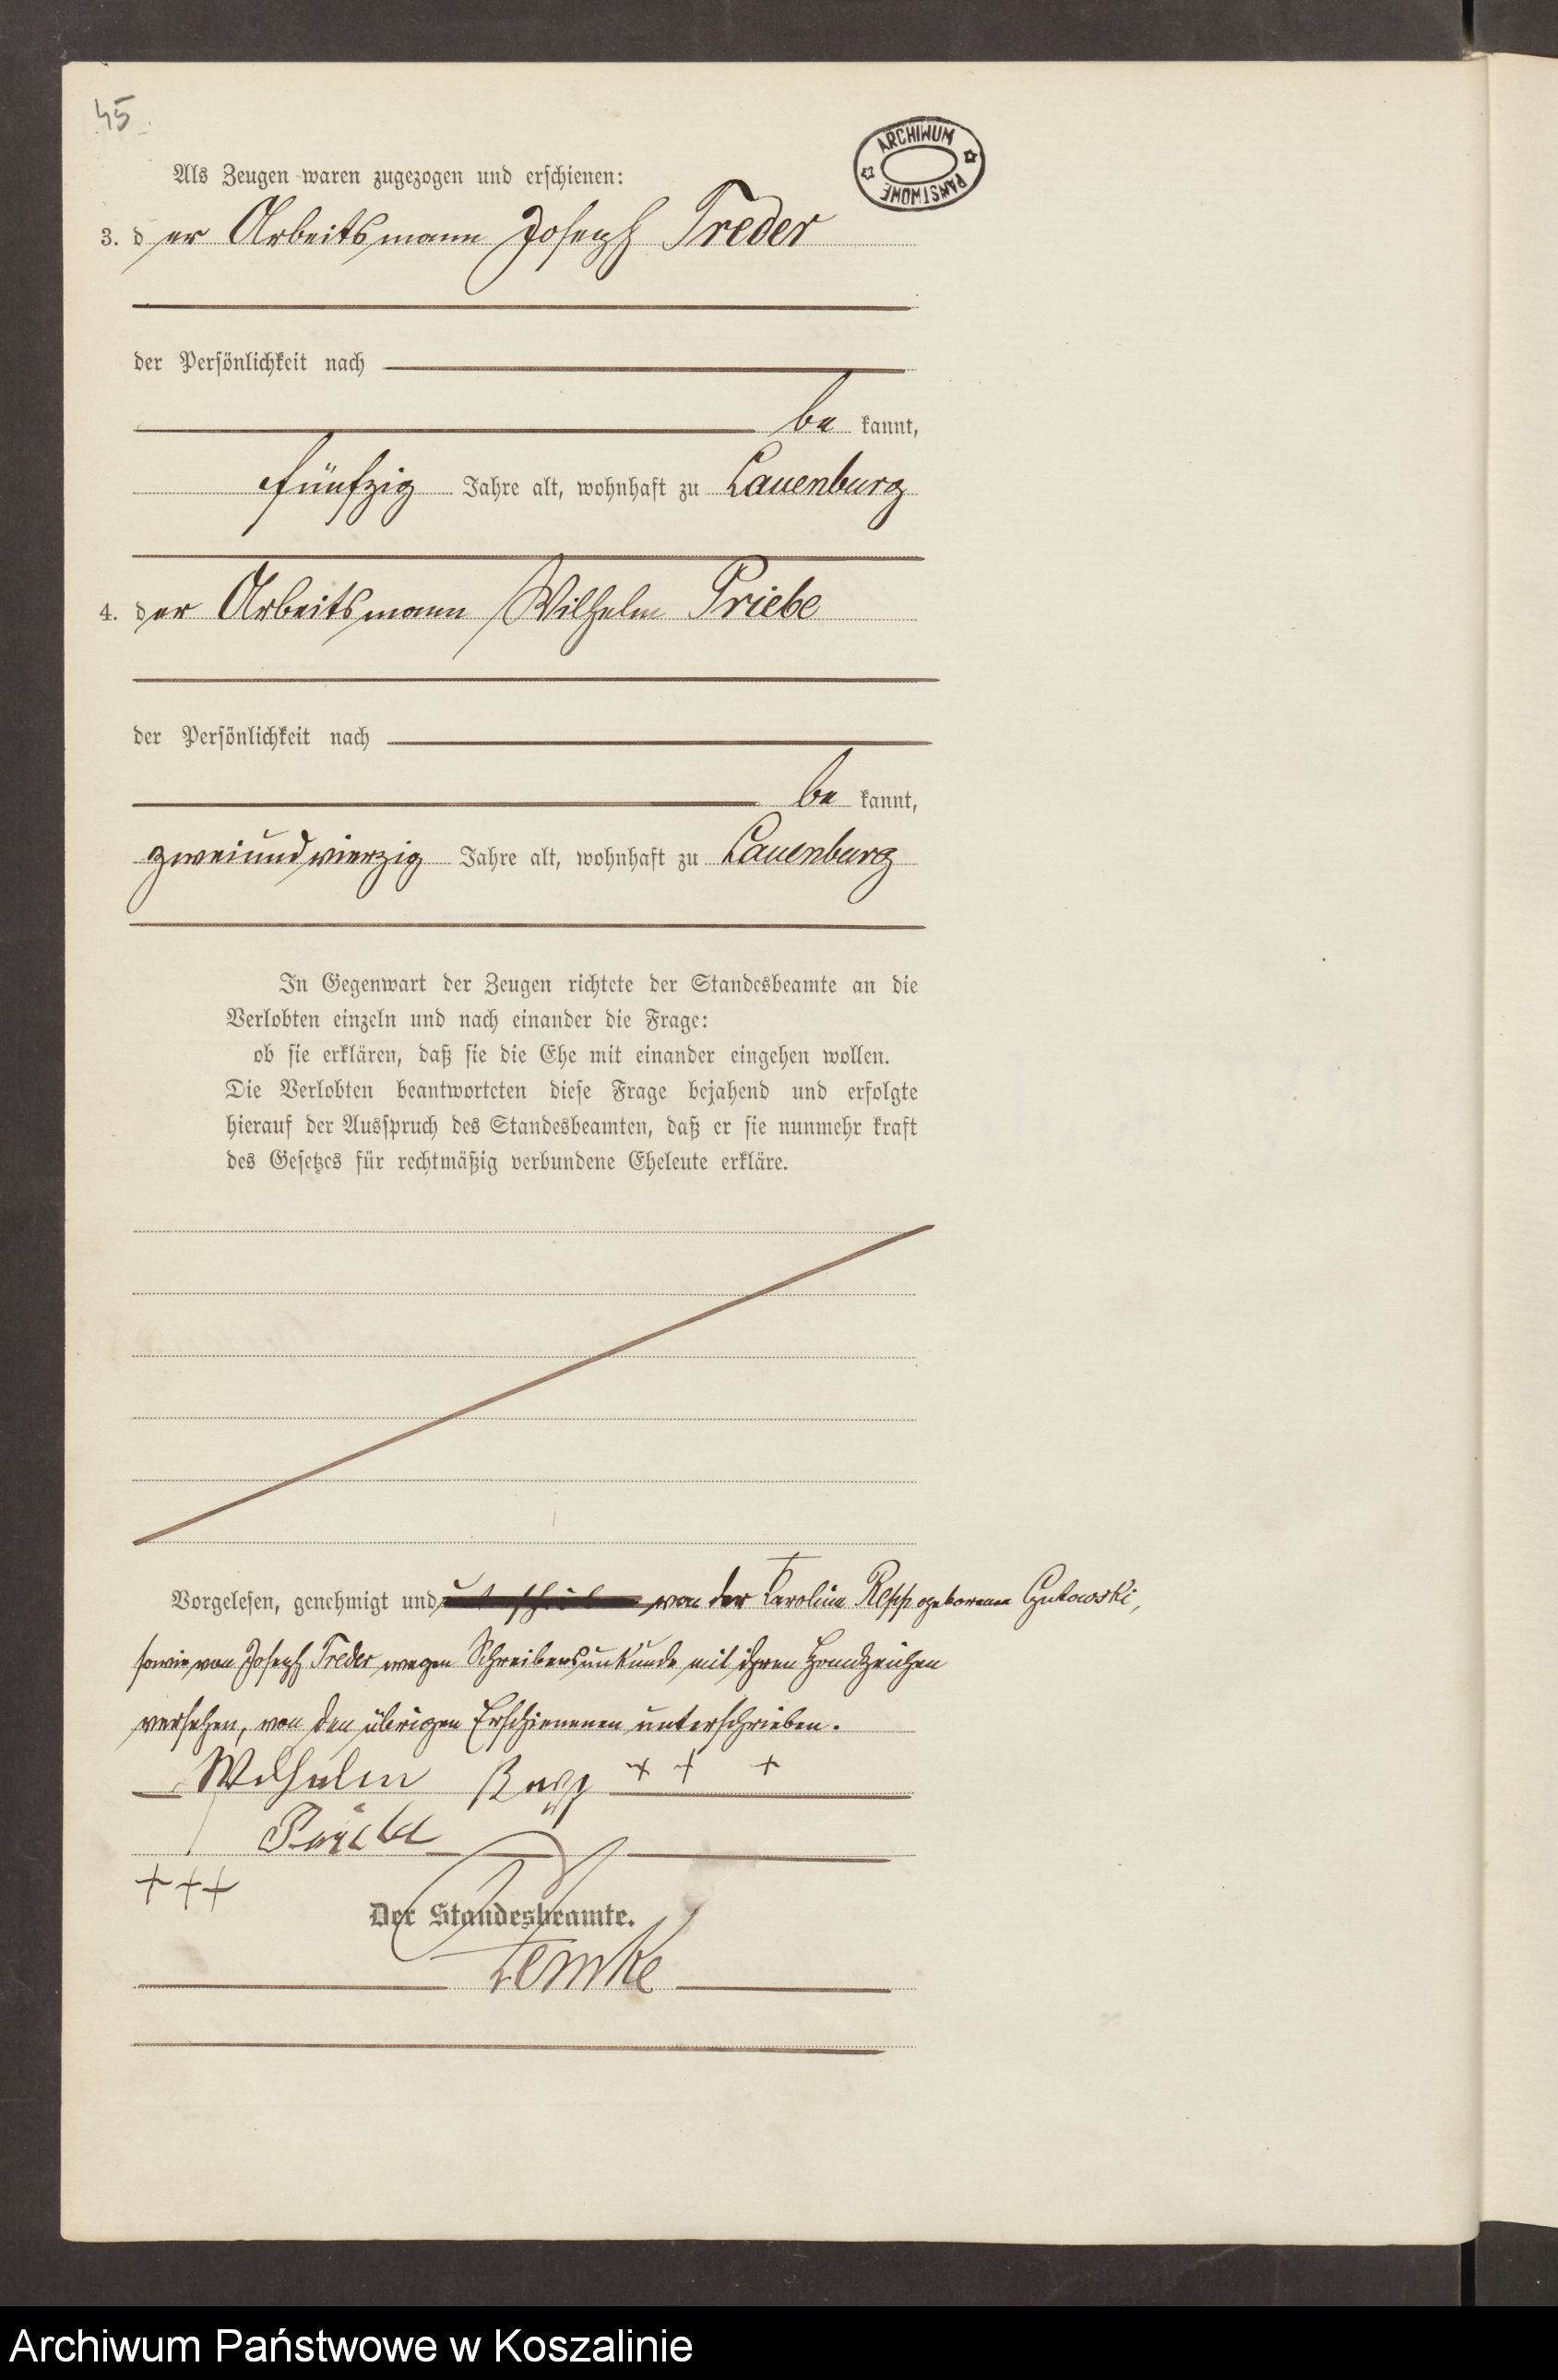 45.
ARCHIWUM
PAŃSTWOWE
Als Zeugen waren zugezogen und erschienen:
3. der Arbeitsmann Joseph Treder
der Persönlichkeit nach
be kannt,
fünfzig Jahre alt, wohnhaft zu Lauenburg
4. der Arbeitsmann Wilhelm Priebe
der Persönlichkeit nach
be kannt,
zweiundvierzig Jahre alt, wohnhaft zu Lauenburg
In Gegenwart der Zeugen richtete der Standesbeamte an die
Verlobten einzeln und nach einander die Frage:
ob sie erklären, daß sie die Ehe mit einander eingehen wollen.
Die Verlobten beantworteten diese Frage bejahend und erfolgte
hierauf der Ausspruch des Standesbeamten, daß er sie nunmehr kraft
des Gesetzes für rechtmäßig verbundene Eheleute erkläre.
Vorgelesen, genehmigt und von der Karoline Repp geborenen
sowie von Joseph Treder wegen Schreibensunkunde mit ihren Handzeichen
versehen, von den übrigen Erschienenen unterschrieben.
Wilhelm Repp + + +
Priebe
+++
Der Standesbeamte.
Lemke
Archiwum Państwowe w Koszalinie